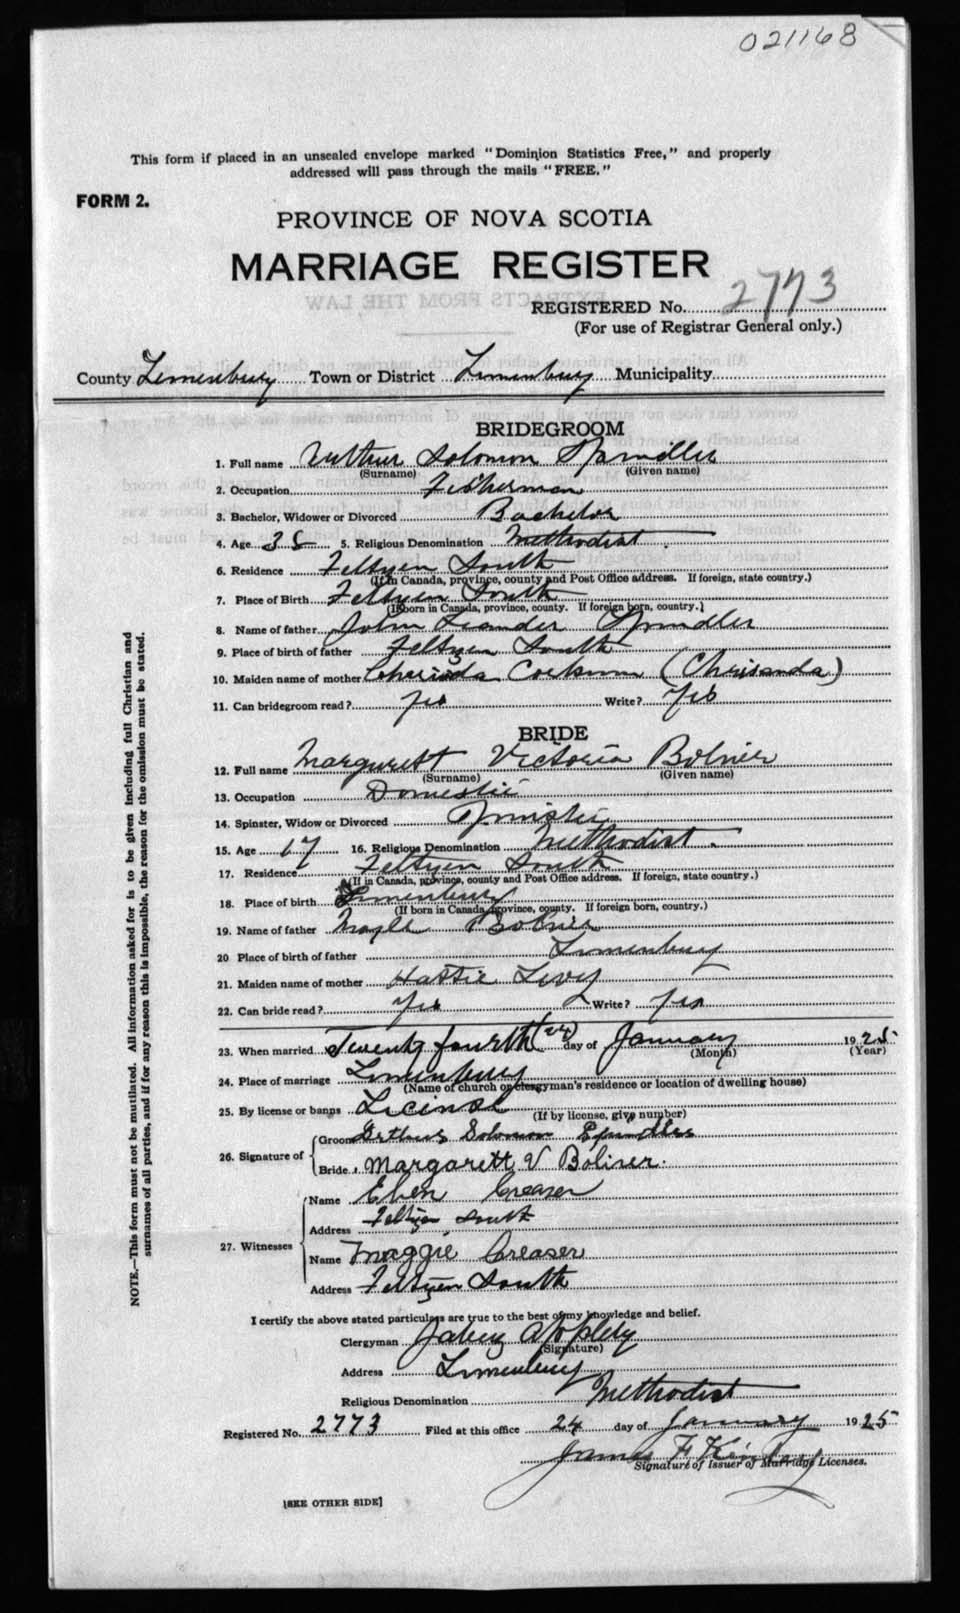 021168
This form if placed in an unsealed envelope marked "Dominion Statistics Free," and properly
addressed will pass through the mails "FREE."
FORM 2.
PROVINCE OF NOVA SCOTIA
MARRIAGE REGISTER
REGISTERED No. 2773
(For use of Registrar General only.)
County Lunenburg Town or District Lunenburg Municipality
BRIDEGROOM
1. Full name Arthur Solomon Spindler
(Surname) (Given name)
2. Occupation Fisherman
3. Bachelor, Widower or Divorced Bachelor
4. Age 35 5. Religious Denomination Methodist
6. Residence Feltzen South
(If in Canada, province, county and Post Office address. If foreign, state country.)
7. Place of Birth Feltzen South
(If born in Canada, province, county. If foreign born, country.)
8. Name of father John Leander Spindler
9. Place of birth of father Feltzen South
10. Maiden name of mother Corkum (Chrisanda)
11. Can bridegroom read? Yes Write? Yes
BRIDE
12. Full name Margarett Victoria Boliver
(Surname) (Given name)
13. Occupation Domestic
14. Spinster, Widow or Divorced Spinster
15. Age 17 16. Religious Denomination Methodist.
17. Residence Feltzen South
(If in Canada, province, county and Post Office address. If foreign, state country.)
18. Place of Birth Lunenburg
(If born in Canada, province, county. If foreign born, country.)
19. Name of father Boliver
20 Place of birth of father Lunenburg
21. Maiden name of mother Hattie Levy
22. Can bride read? Yes Write? Yes
23. When married Twenty fourth (24) day of January 1925
(Month) (Year)
24. Place of marriage Lunenburg
(Name of church or clergyman's residence or location of dwelling house)
25. By license or banns Licinse
(If by license, give number)
26. Signature of
Groom Arthur Solomon Spindler
Bride Margarett V Boliver.
27. Witnesses
Name Eben Creaser
Address Feltzen South
Name Maggie Creaser
Address Feltzen South
I certify the above stated particulars are true to the best of my knowledge and belief.
Clergyman Jabez Appleby
(Signature)
Address Lunenburg
Religious Denomination Methodist
Registered No. 2773 Filed at this office 24 day of January 1925
James F
Signature of Issuer of Marriage Licenses.
[SEE OTHER SIDE]
NOTE.—This form must not be mutilated. All information asked for is to be given including full Christian and
surnames of all parties, and if for any reason this is impossible, the reason for the omission must be stated.